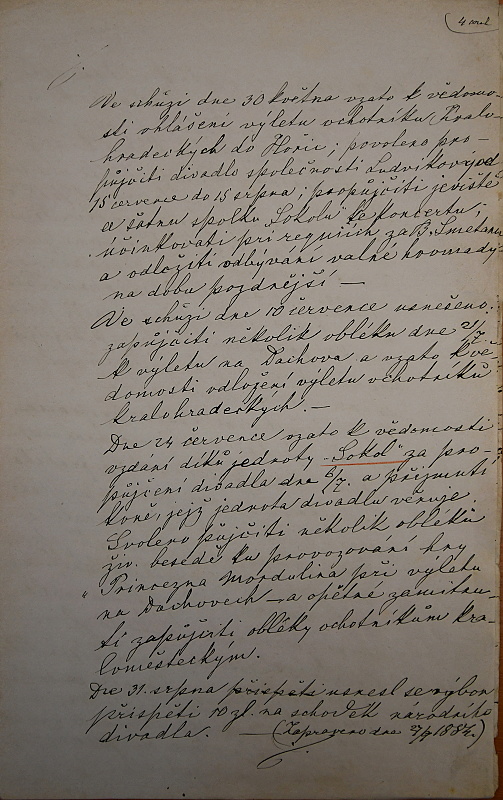 Ve schůzi dne 30 května vzato k vědomo-
sti ohlášení výletu ochotníků Kralo-
hradeckých do Hořic; povoleno pro-
půjčiti divadlo společnosti Ludvíkový od
15 července do 15 srpna; propůjčiti jeviště
a šatnu spolku "Sokolu" ke koncertu;
účinkovati při requiich za B. Smetanu
a odložiti odbývání valné hromady
na dobu pozdnější —
Ve schůzi dne 10 července usnešeno:
zapůjčiti několik obleků dne 21/7
k výletu na Dachova a vzato k vě-
domosti odložení výletu ochotníků
kralohradeckých. —
Dne 24 července vzato k vědomosti
vzdání díků jednoty "Sokol" za pro-
půjčení divadla dne 6/7. a přijmutí
koně, jejž jednota divadlu věnuje.
Svoleno půjčiti několik obleků
živ. besedě ku provozování hry
"Princezna Mordulina při výletu
na Dachovech — a opětně zamítnu-
tí zapůjčiti obleky ochotníkům kra-
loměsteckým.
Dne 31. srpna přispěti usnesl se výbor
přispěti 10 zl. na schodek národního
divadla. — (Zapraveno dne 1884.)